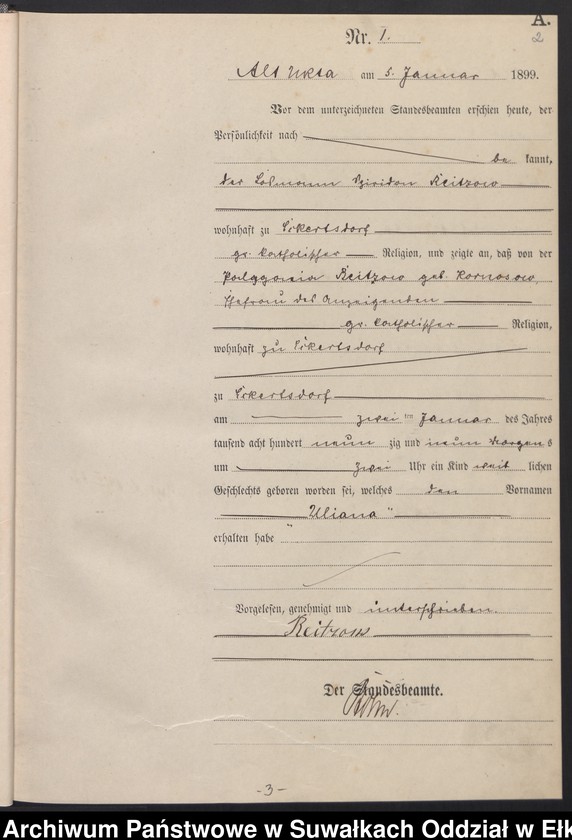 A.
2
Nr. 1.
Alt Ukta am 5. Januar 1899.
Vor dem unterzeichneten Standesbeamten erschien heute, der
Persönlichkeit nach
be kannt,
der Losmann Spiridon Reitzow
wohnhaft zu Eckertsdorf
gr. katholischer Religion, und zeigte an, daß von der
Reitzow geb. Kornosow,
Ehefrau des Anzeigenden
gr. katholischer Religion,
wohnhaft zu Eckertsdorf
zu Eckertsdorf
am zwei ten Januar des Jahres
tausend acht hundert neun zig und neun Morgens
um zwei Uhr ein Kind weib lichen
Geschlechts geboren worden sei, welches den Vornamen
"Uliana"
erhalten habe
Vorgelesen, genehmigt und unterschrieben.
Reitzow
Der Standesbeamte.
-3-
Archiwum Państwowe w Suwałkach Oddział w Ełk